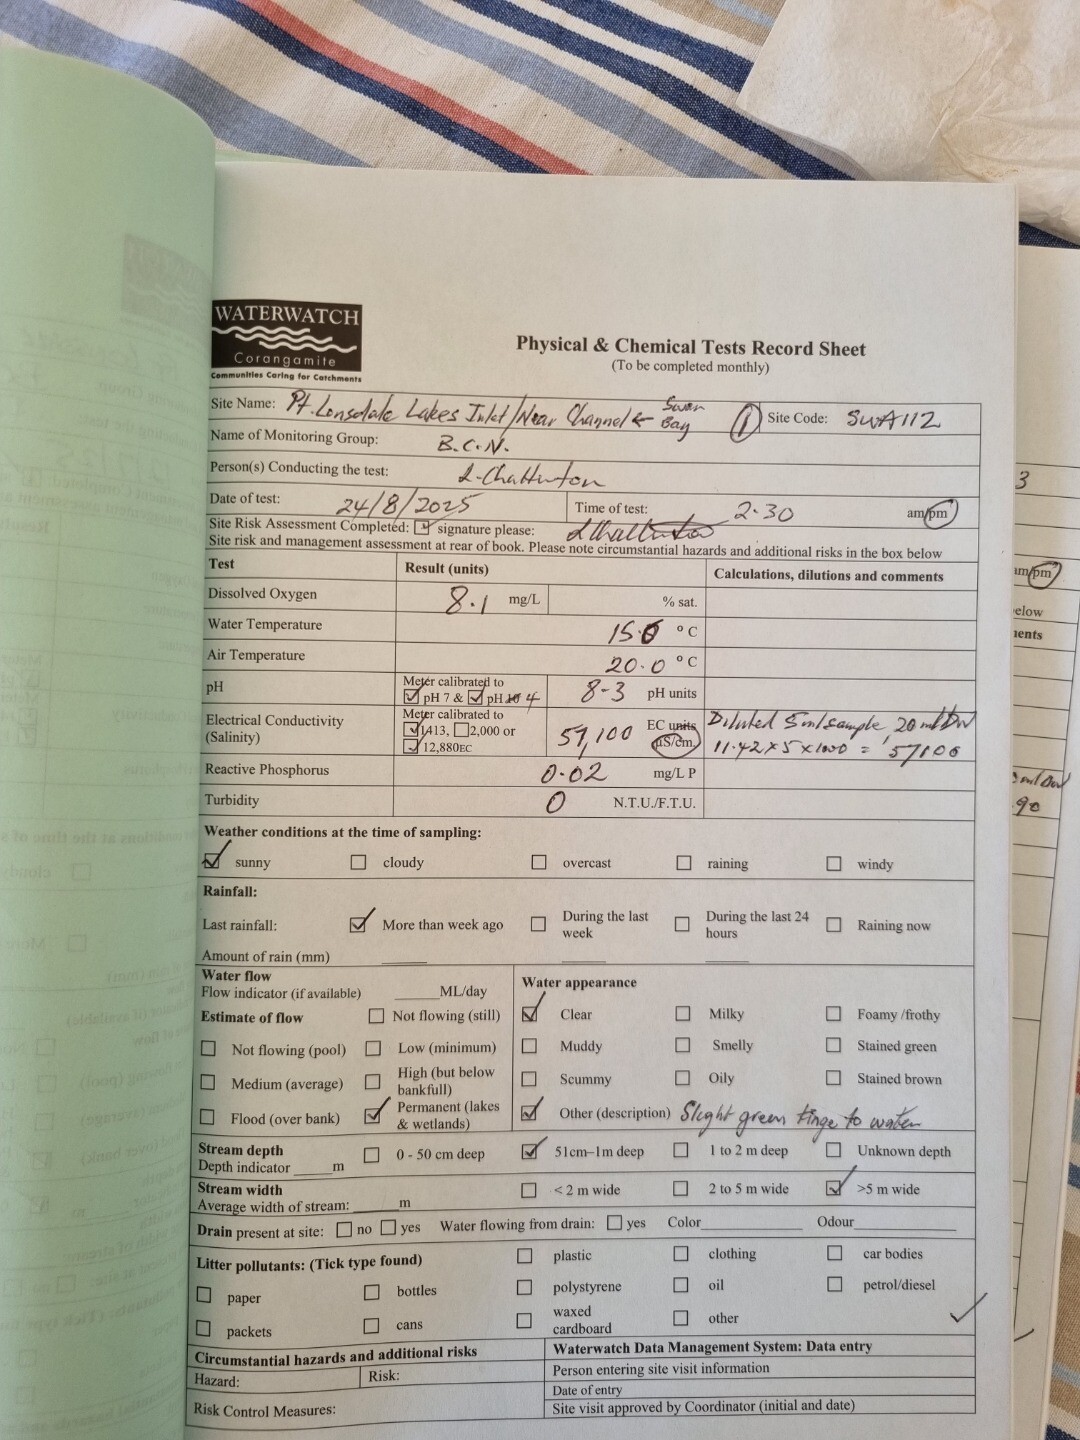 WATERWATCH
Corangamite
Communities Caring for Catchments
Physical & Chemical Tests Record Sheet
(To be completed monthly)
Site Name: Pt. Lonsdale Lakes Inlet/Near Channel ← Swan Bay ① Site Code: SWA112
Name of Monitoring Group: B.C.N.
Person(s) Conducting the test: L. Chatterton
Date of test: 24/8/2025 Time of test: 2.30 am/pm
Site Risk Assessment Completed: signature please:
Site risk and management assessment at rear of book. Please note circumstantial hazards and additional risks in the box below
Test Result (units) Calculations, dilutions and comments
Dissolved Oxygen 8.1 mg/L % sat.
Water Temperature 15.0 °C
Air Temperature 20.0 °C
pH Meter calibrated to pH 7 & pH 10 4 8.3 pH units
Electrical Conductivity (Salinity) Meter calibrated to 1413, 2,000 or 12,880EC 57,100 EC units µS/cm Diluted 5ml sample, 20ml DW
11.42 x 5 x 1000 = 57100
Reactive Phosphorus 0.02 mg/L P
Turbidity 0 N.T.U./F.T.U.
Weather conditions at the time of sampling:
sunny cloudy overcast raining windy
Rainfall:
Last rainfall: More than week ago During the last week During the last 24 hours Raining now
Amount of rain (mm)
Water flow
Flow indicator (if available) ML/day
Estimate of flow Not flowing (still)
Not flowing (pool) Low (minimum)
Medium (average) High (but below bankfull)
Flood (over bank) Permanent (lakes & wetlands)
Water appearance
Clear Milky Foamy /frothy
Muddy Smelly Stained green
Scummy Oily Stained brown
Other (description) Slight green tinge to water
Stream depth
Depth indicator m 0 - 50 cm deep 51cm–1m deep 1 to 2 m deep Unknown depth
Stream width
Average width of stream: m < 2 m wide 2 to 5 m wide >5 m wide
Drain present at site: no yes Water flowing from drain: yes Color Odour
Litter pollutants: (Tick type found) plastic clothing car bodies
paper bottles polystyrene oil petrol/diesel
packets cans waxed cardboard other
Circumstantial hazards and additional risks
Hazard: Risk:
Risk Control Measures:
Waterwatch Data Management System: Data entry
Person entering site visit information
Date of entry
Site visit approved by Coordinator (initial and date)
3
am/pm
below
90